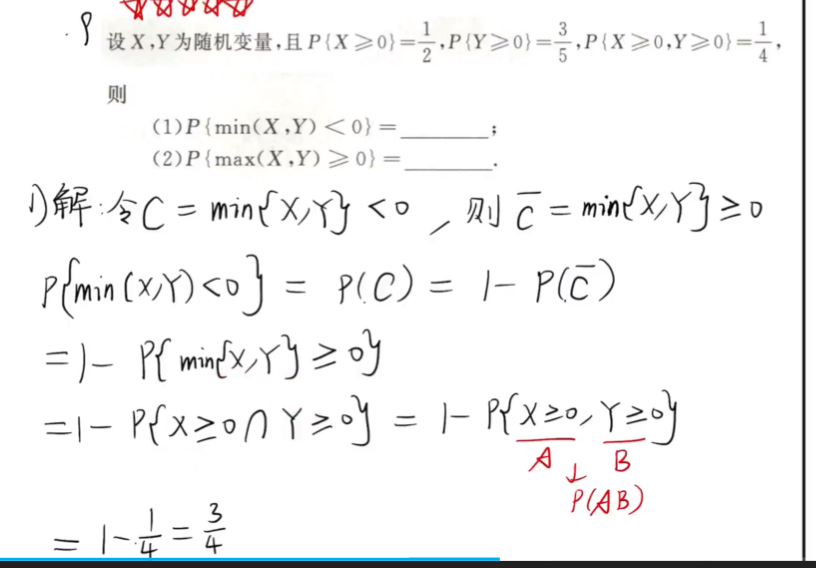 9
设X,Y为随机变量,且P{X⩾0}=1/2,P{Y⩾0}=3/5,P{X⩾0,Y⩾0}=1/4,
则
(1)P{min(X,Y)<0}=________;
(2)P{max(X,Y)⩾0}=________.
1)解:令C=min{X,Y}<0,则C̅=min{X,Y}≥0
P{min(X,Y)<0}=P(C)=1-P(C̅)
=1-P{min{X,Y}≥0}
=1-P{X≥0∩Y≥0}=1-P{X≥0,Y≥0}
A ↓ B
P(AB)
=1-1/4=3/4